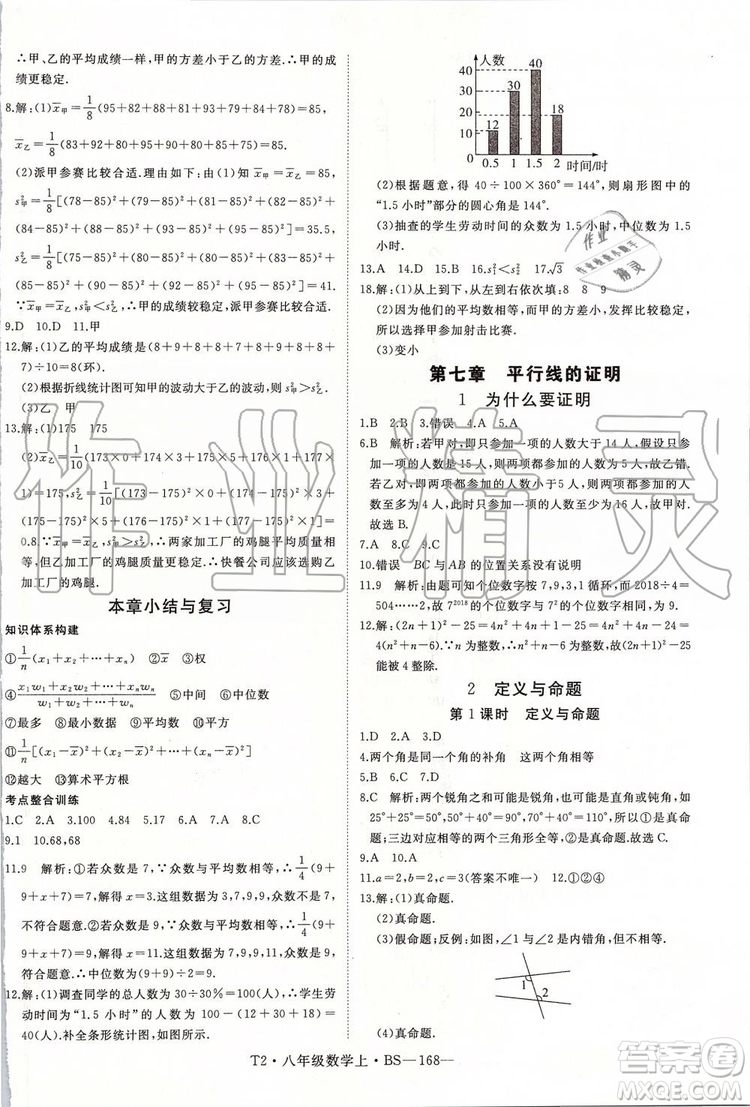 ∴甲、乙的平均成绩一样,甲的方差小于乙的方差.∴甲的成
绩更稳定.
8.解:(1)x̄甲=1/8(95+82+88+81+93+79+84+78)=85,
x̄乙=1/8(83+92+80+95+90+80+85+75)=85.
(2)派甲参赛比较合适.理由如下:由(1)知x̄甲=x̄乙,
s²甲=1/8[(78-85)²+(79-85)²+(81-85)²+(82-85)²+
(84-85)²+(88-85)²+(93-85)²+(95-85)²]=35.5,
s²乙=1/8[(75-85)²+(80-85)²+(80-85)²+(83-85)²+
(85-85)²+(90-85)²+(92-85)²+(95-85)²]=41,
∵x̄甲=x̄乙,s²甲<s²乙,∴甲的成绩较稳定,派甲参赛比较合适.
9.D 10.D 11.甲
12.解:(1)乙的平均成绩是(8+9+8+8+7+8+9+8+8+
7)÷10=8(环).
(2)根据折线统计图可知甲的波动大于乙的波动,则s²甲>s²乙.
(3)乙 甲
13.解:(1)175 175
(2)x̄乙=1/10(173×0+173×1+174×2+175×4+176×2+
177×1)=175,s²乙=1/10[(173-175)²×1+(174-175)²×2+
(175-175)²×4+(176-175)²×2+(177-175)²×1]=
0.8.∵s²甲>s²乙,∴两家加工厂的鸡腿质量大致相等,但乙
加工厂的鸡腿质量更稳定.因此快餐公司应该选购乙
加工厂的鸡腿.
本章小结与复习
知识体系构建
①1/n(x₁+x₂+…+xₙ) ②x̄ ③权
④(x₁w₁+x₂w₂+…+xₙwₙ)/(w₁+w₂+…+wₙ) ⑤中间 ⑥中位数
⑦最多 ⑧最小数据 ⑨平均 ⑩平方
⑪1/n[(x₁-x̄)²+(x₂-x̄)²+…+(xₙ-x̄)²]
⑫越大 ⑬算术平方根
考点整合训练
1.C 2.A 3.100 4.84 5.17 6.A 7.A 8.C
9.1 10.68,68
11.9 解析:①若众数是7,∵众数与平均数相等,∴1/4(9+
9+x+7)=7,解得x=3.这组数据为3,7,9,9,众数为9,
不符合题意;②若众数为9,∵众数与平均数相等,∴1/4(9+
9+x+7)=9,解得x=11.这组数据为7,9,9,11,众数为
9,符合题意;∴中位数为(9+9)÷2=9.
12.解:(1)调查同学的总人数为30÷30%=100(人),∴学生劳
动时间为“1.5小时”的人数为100-(12+30+18)=
40(人).补全条形统计图如图所示.
人数
40
30
20
10
0
12
30
40
18
0.5 1 1.5 2 时间/时
(2)根据题意,得40÷100×360°=144°,则扇形图中的
“1.5小时”部分的圆心角为144°.
(3)抽查的学生劳动时间的众数为1.5小时,中位数为1.5
小时.
13.A 14.D 15.B 16.s₁²<s₂² 17.√3
18.解:(1)从上到下,从左到右依次填:8 8 9
(2)因为他们的平均数相等,而甲的方差小,发挥比较稳定,
所以选择甲参加射击比赛.
(3)变小
第七章 平行线的证明
1 为什么要证明
1.B 2.B 3.错误 4.A 5.A
6.B 解析:若甲对,即只参加一项的人数大于14人,假设只参
加一项的人数是15人,则两项都参加的人数为5人,故乙错.
若乙对,即两项都参加的人数小于5人,则两项都参加的人
数至多为4人,此时只参加一项的人数为16人,故甲对.
故选B.
7.A 8.C 9.C
10.错误 BC与AB的位置关系没有说明
11.9 解析:由题可知个位数字按7,9,3,1循环,而2018÷4=
504……2,故7²⁰¹⁸的个位数字与7²的个位数字相同,故为9.
12.解:(2n+1)²-2n-5=4n²+4n+1-2n-5=4n²+2n-
4=(n²+n-6).∵n为整数,∴n²+n-6为整数,∴(2n+1)²-25能
被4整除.
2 定义与命题
第1课时 定义与命题
1.D 2.A 3.D
4.两个角是同一个角的补角 这两个角相等
5.B 6.②③④ 7.D
8.C 解析:两个锐角之和可能是锐角,也可能是直角或钝角,如
25°+25°=50°,50°+40°=90°,50°+60°=110°,故C是假命
题;三边对应相等的两个三角形全等,故D是真命题.
9.A 10.A
11.a=2,b=2,c=3(答案不唯一) 12.①②④
13.解:(1)真命题.
(2)真命题.
(3)假命题;反例:如图,∠1与∠2是内错角,但不相等.
1
2
(4)真命题.
T2·八年级数学上·BS—168—
作业精灵
作业
作业检查小助手
精灵
答案圈
MXQE.COM